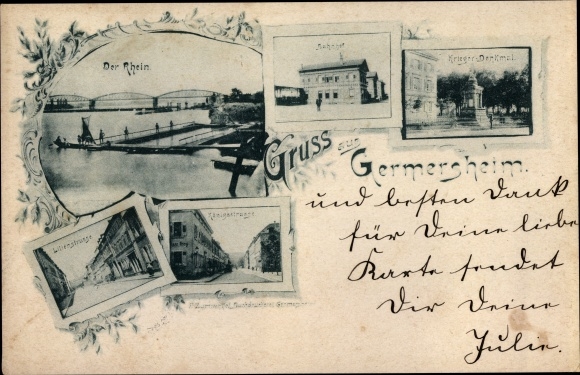 Der Rhein.
Bahnhof
Krieger-Denkmal.
Gruss aus
Germersheim.
Lilienstrasse
Königsstrasse
und besten Dank
für Deine liebe
Karte sendet
Dir Deine
Julie.